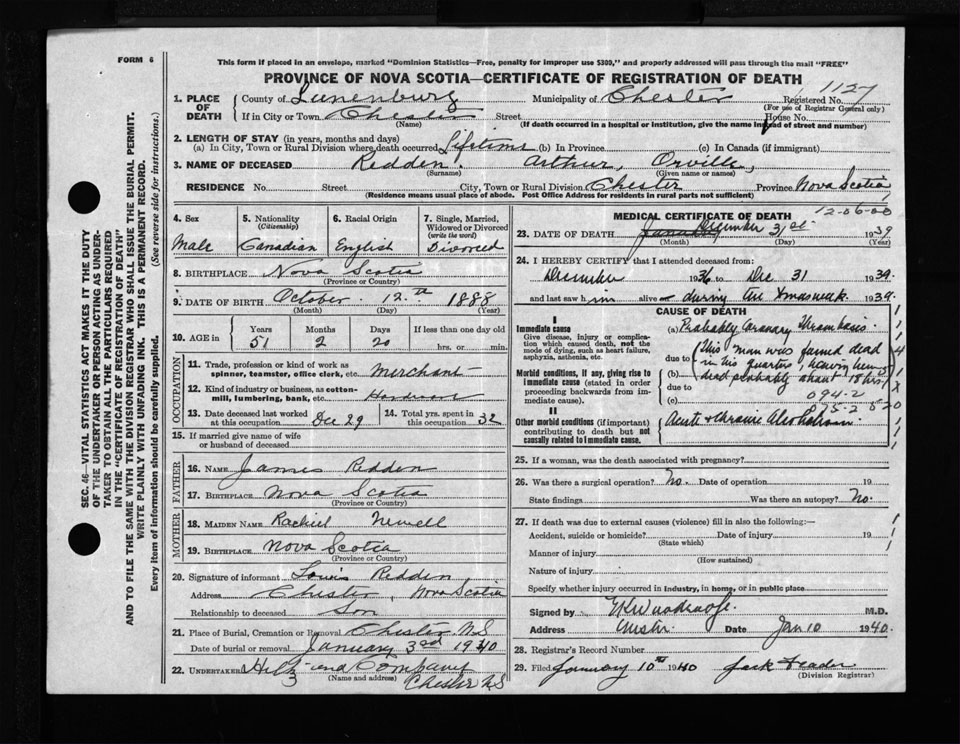 FORM 6
This form if placed in an envelope, marked "Dominion Statistics—Free, penalty for improper use $300," and properly addressed will pass through the mail "FREE"
PROVINCE OF NOVA SCOTIA—CERTIFICATE OF REGISTRATION OF DEATH
1127
1. PLACE OF DEATH County of Lunenburg Municipality of Chester Registered No.
(For use of Registrar General only)
If in City or Town Chester Street House No.
(Name) (If death occurred in a hospital or institution, give the name instead of street and number)
2. LENGTH OF STAY (in years, months and days)
(a) In City, Town or Rural Division where death occurred Lifetime (b) In Province (c) In Canada (if immigrant)
3. NAME OF DECEASED Redden. Arthur, Orville,
(Surname) (Given name or names)
RESIDENCE No. Street City, Town or Rural Division Chester Province Nova Scotia
(Residence means usual place of abode. Post Office Address for residents in rural parts not sufficient)
SEC. 46—VITAL STATISTICS ACT MAKES IT THE DUTY
OF THE UNDERTAKER OR PERSON ACTING AS UNDER-
TAKER TO OBTAIN ALL THE PARTICULARS REQUIRED
IN THE "CERTIFICATE OF REGISTRATION OF DEATH"
AND TO FILE THE SAME WITH THE DIVISION REGISTRAR WHO SHALL ISSUE THE BURIAL PERMIT.
WRITE PLAINLY WITH UNFADING INK. THIS IS A PERMANENT RECORD.
Every item of information should be carefully supplied. (See reverse side for instructions.)
4. Sex 5. Nationality (Citizenship) 6. Racial Origin 7. Single, Married, Widowed or Divorced (write the word)
Male Canadian English Divorced
8. BIRTHPLACE Nova Scotia
(Province or Country)
9. DATE OF BIRTH October 12th 1888
(Month) (Day) (Year)
10. AGE in Years Months Days If less than one day old
51 2 20 hrs. or min.
OCCUPATION
11. Trade, profession or kind of work as
spinner, teamster, office clerk, etc. Merchant
12. Kind of industry or business, as cotton-
mill, lumbering, bank, etc. Hardware
13. Date deceased last worked at this occupation Dec 29 14. Total yrs. spent in this occupation 32
15. If married give name of wife
or husband of deceased
FATHER
16. NAME James Redden
17. BIRTHPLACE Nova Scotia
(Province or Country)
MOTHER
18. MAIDEN NAME Rachiel Newell
19. BIRTHPLACE Nova Scotia
(Province or Country)
20. Signature of informant Louis Redden
Address Chester, Nova Scotia
Relationship to deceased Son
21. Place of Burial, Cremation or Removal Chester N.S
Date of burial or removal January 3rd 1940
22. UNDERTAKER Hiltz and Company
(Name and address) Chester N.S
MEDICAL CERTIFICATE OF DEATH
12-06-00
23. DATE OF DEATH January December 31st 1939
(Month) (Day) (Year)
24. I HEREBY CERTIFY that I attended deceased from:
December 1936 to Dec 31 1939.
and last saw him alive during the Xmas week 1939.
CAUSE OF DEATH
I
Immediate cause
Give disease, injury or complica-
tion which caused death, not the
mode of dying, such as heart failure,
asphyxia, asthenia, etc.
(a) Probably Coronary Thrombosis.
due to (This man was found dead
Morbid conditions, if any, giving rise to
immediate cause (stated in order
proceeding backwards from im-
mediate cause).
(b) in his quarters, having been
due to dead probably about 18 hrs.)
(c) 094-2
II
Other morbid conditions (if important)
contributing to death but not
causally related to immediate cause.
Acute & chronic Alcoholism.
25. If a woman, was the death associated with pregnancy?
26. Was there a surgical operation? No. Date of operation 19
State findings Was there an autopsy? No.
27. If death was due to external causes (violence) fill in also the following:—
Accident, suicide or homicide? Date of injury 19
(State which)
Manner of injury
(How sustained)
Nature of injury
Specify whether injury occurred in industry, in home, or in public place
Signed by M.D.
Address Chester Date Jan 10 1940.
28. Registrar's Record Number
29. Filed January 10th 1940 Jack
(Division Registrar)